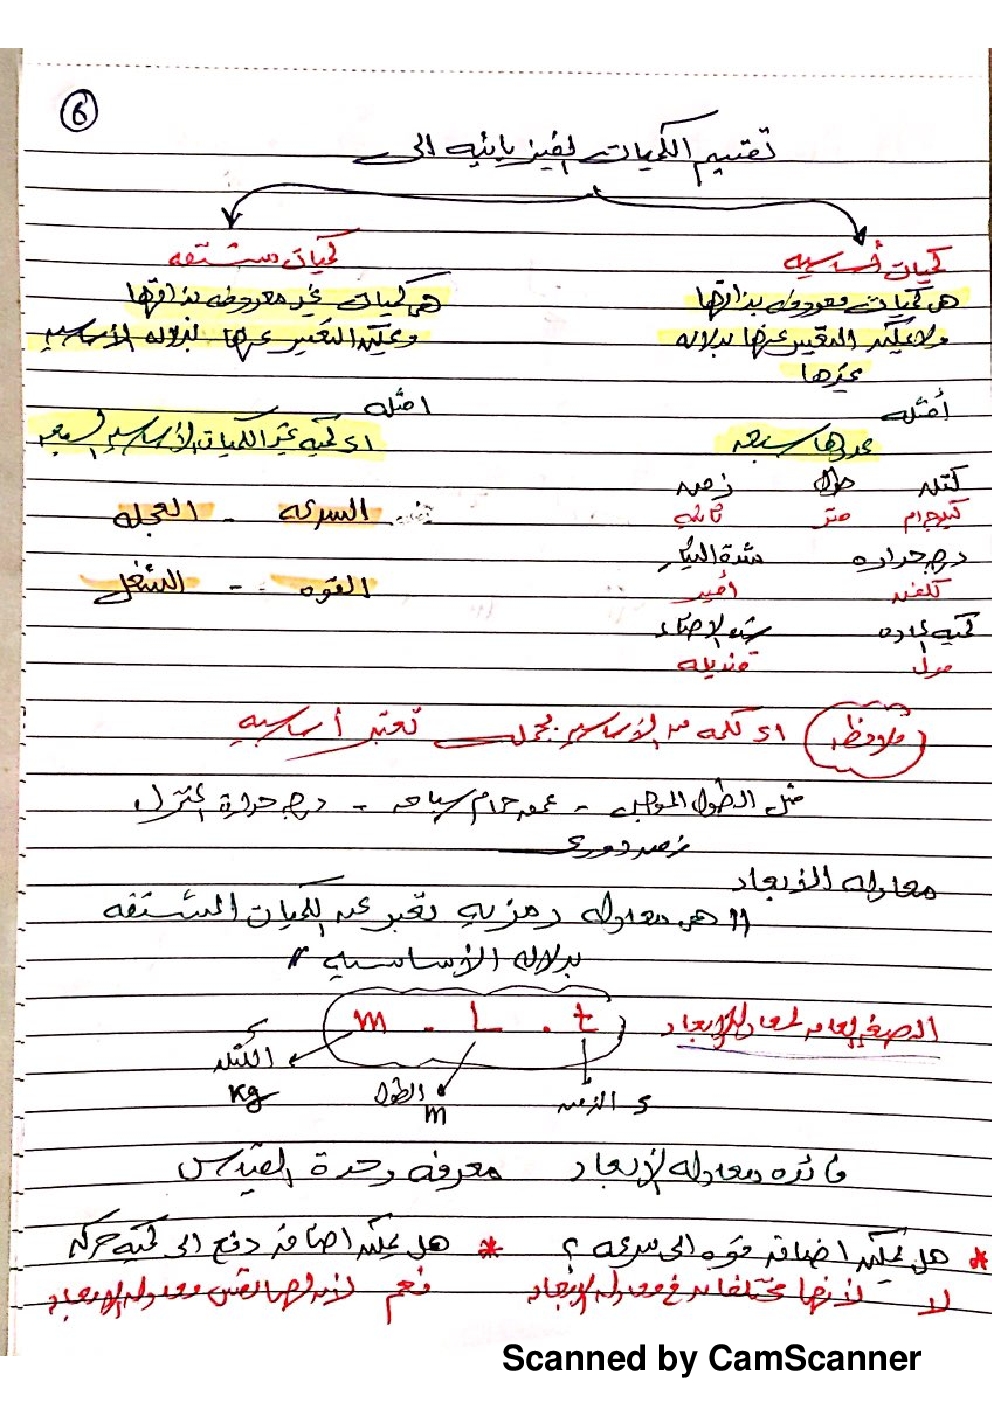 6
تقسيم الكميات الفيزيائيه الى
كميات أساسيه
هى كميات معروفه بذاتها
ولا يمكن التعبير عنها بدلاله
غيرها
أمثله
عددها سبعه
كتله طول زمن
كيلوجرام متر ثانيه
درجه حراره شدة التيار
كلفن أمبير
كميه الماده شدة الإضاءه
مول قنديله
كميات مشتقه
هى كميات غير معروفه بذاتها
ويمكن التعبير عنها بدلاله الأساسيه
امثله
اى كميه غير الكميات الأساسيه السبعه
السرعه - العجله
القوه - الشغل
ملاحظه اى كلمه من الأساسيه بجملـه تعتبر أساسيه
مثل الطول الموجى - عمق حمام سباحه - درجه حرارة المنزل
زمن دورى
معادله الأبعاد
" هى معادله رمزيه تعبر عن الكميات المشتقه
بدلاله الأساسيه "
الصيغه العامه لمعادله الأبعاد m . L . t
الكتله
Kg
الطول
m
الزمن s
فائده معادله الأبعاد معرفه وحدة القياس
* هل يمكن اضافه قوه الى سرعه ؟
لا لأنها مختلفه فى معادله الأبعاد
* هل يمكن اضافه دفع الى كميه حركه
نعم لأن لها نفس معادله الأبعاد
Scanned by CamScanner